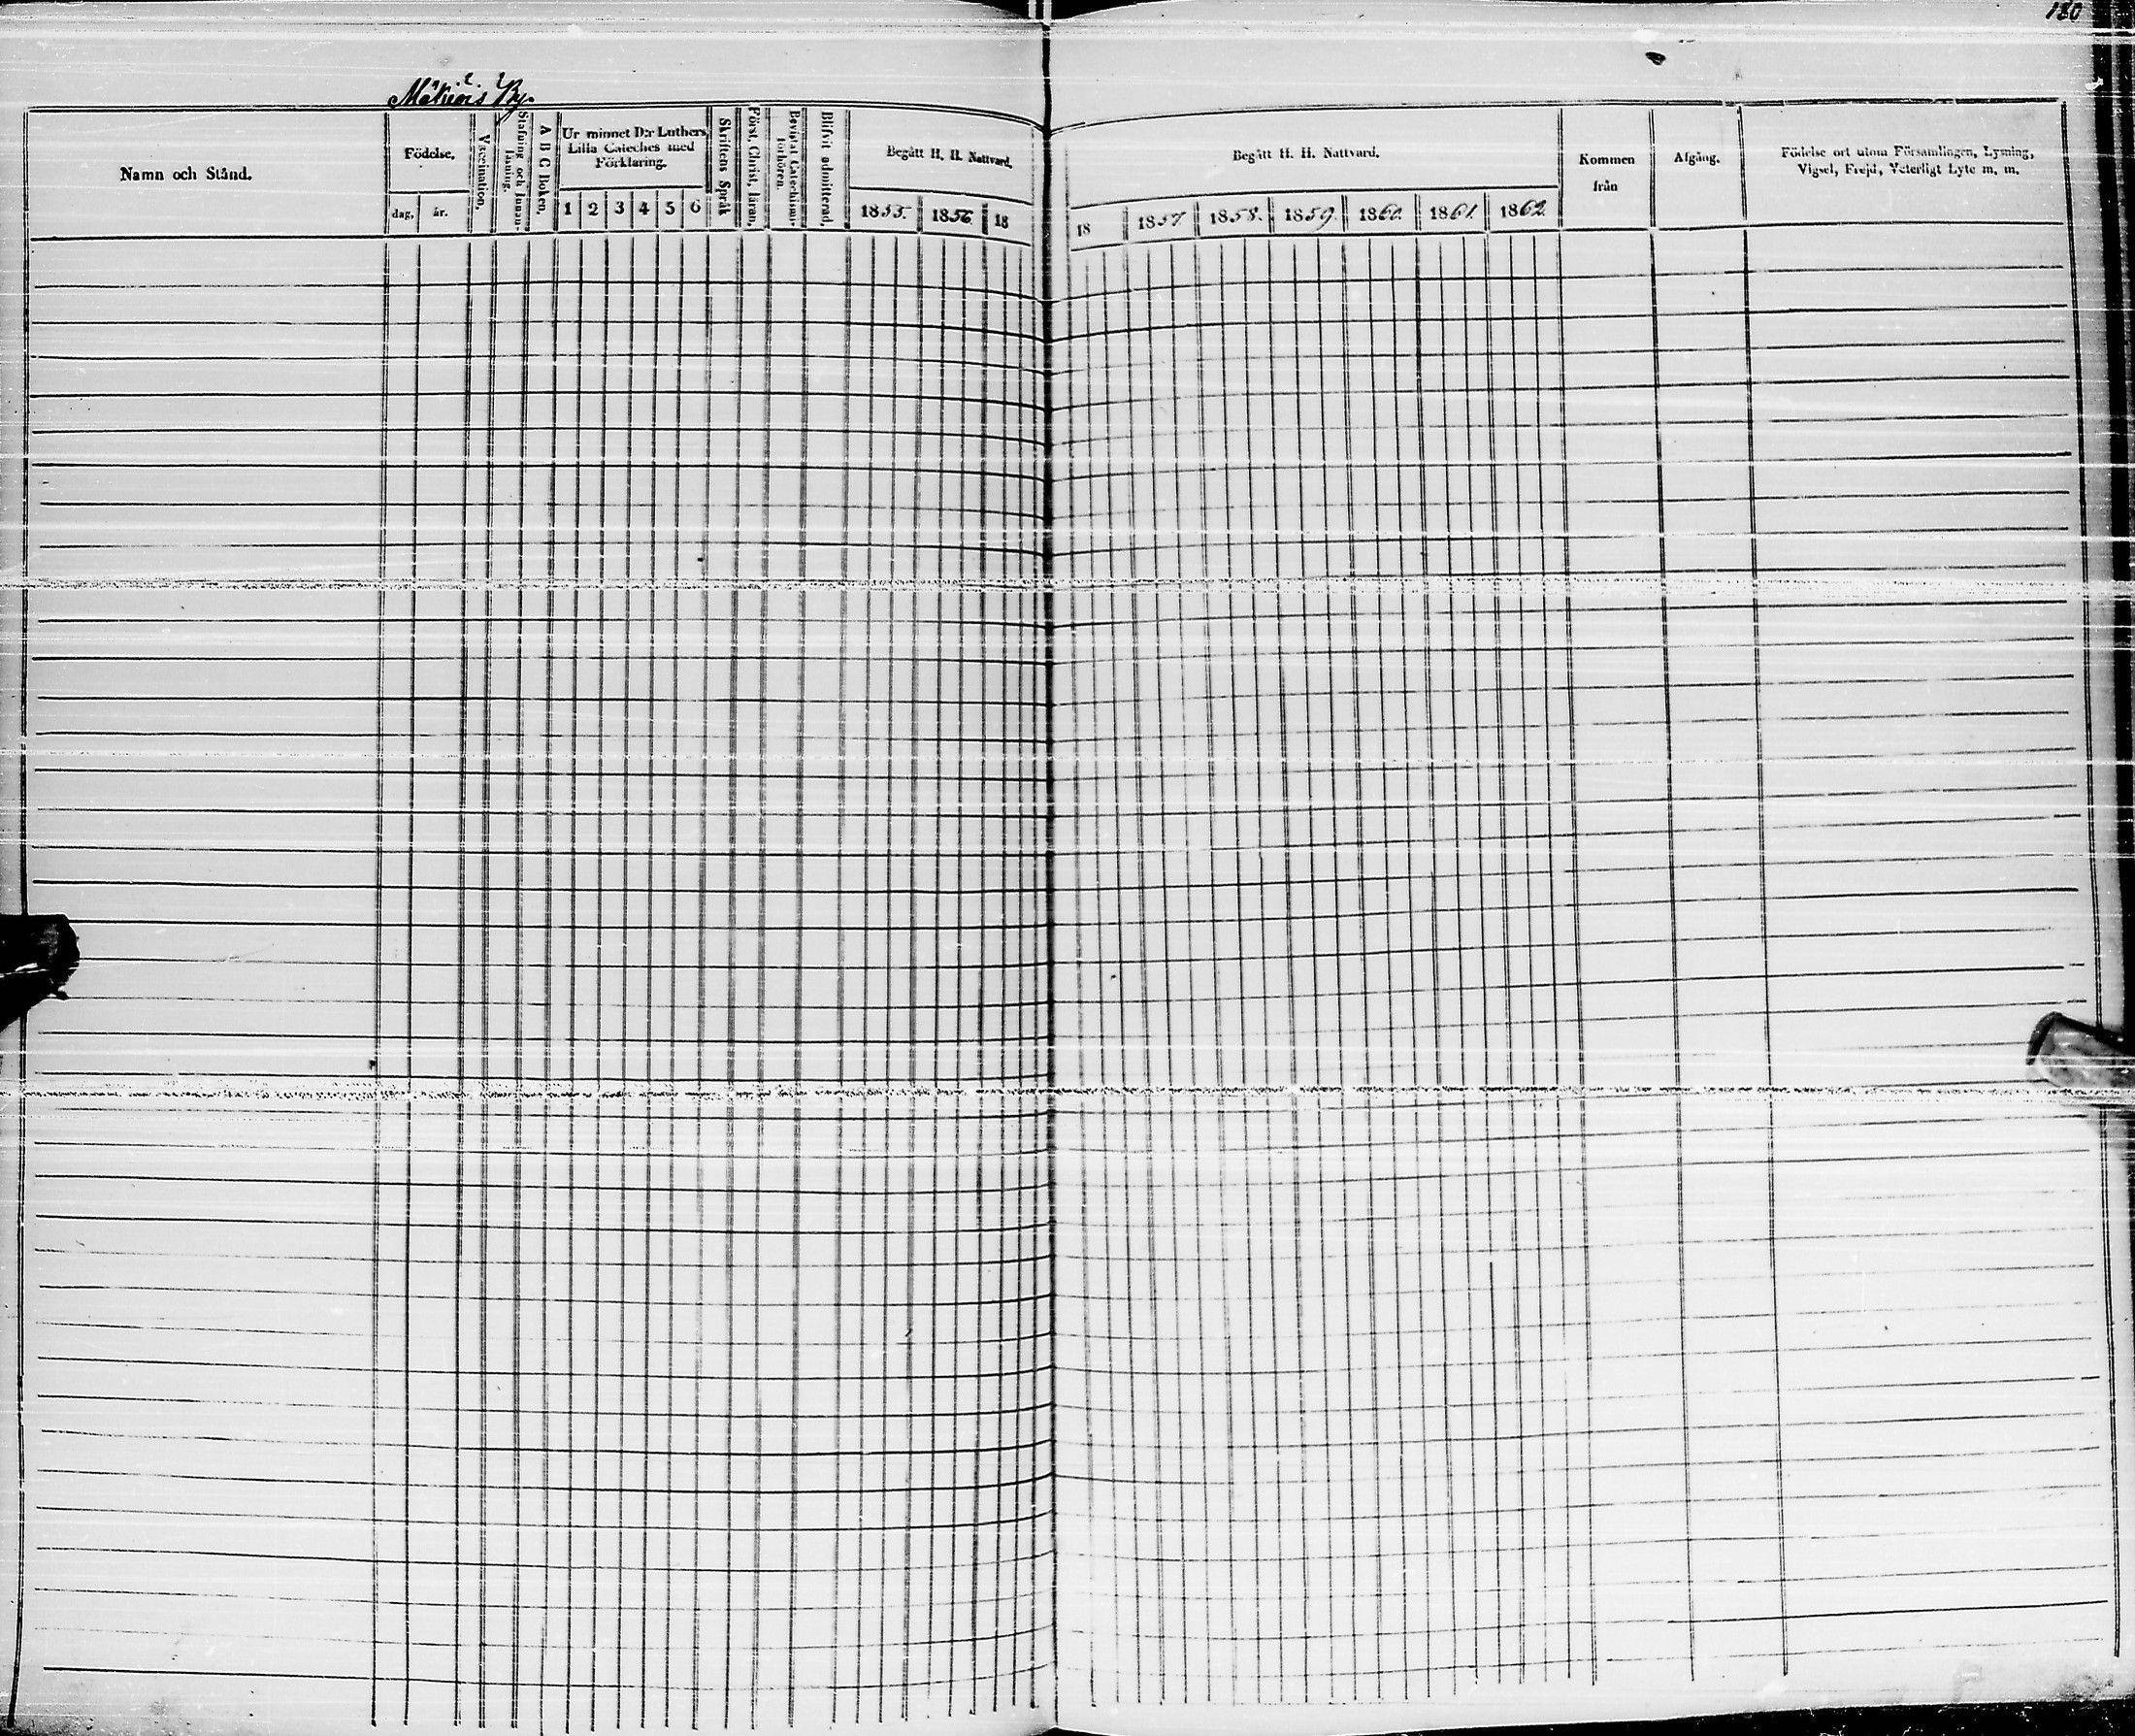 180
Mäkiäis By.
Namn och Stånd.
Födelse.
dag.
år.
Vaccination.
Stafning och Innan-
läsning.
A B C Boken.
Ur minnet D:r Luthers
Lilla Cateches med
Förklaring.
1 2 3 4 5 6
Skriftens Språk
Först. Christ. läran.
Bevistat Catechismi-
förhören.
Blifvit admitterad.
Begått H. H. Nattvard.
1855. 1856. 18
Begått H. H. Nattvard.
18 1857. 1858. 1859. 1860. 1861. 1862.
Kommen
från
Afgång.
Födelse ort utom Församlingen, Lysning,
Vigsel, Frejd, Veterligt Lyte m. m.